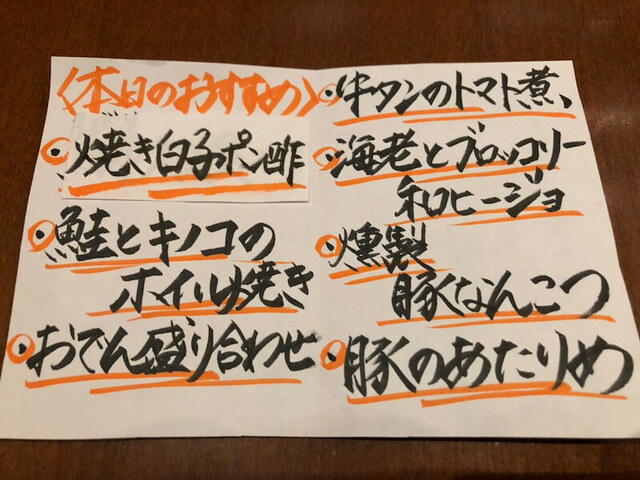 〈本日のおすすめ〉
・焼き白子ポン酢
・鮭とキノコの
ホイル焼き
・おでん盛り合わせ
・牛タンのトマト煮、
・海老とブロッコリー
和ヒージョ
・燻製
豚なんこつ
・豚のあたりめ